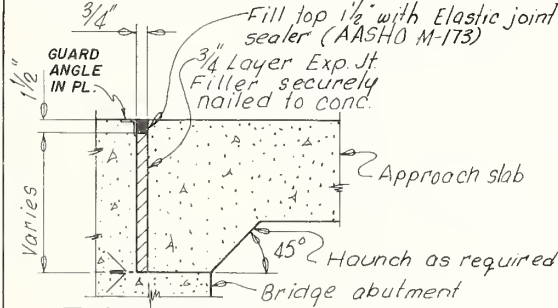 3/4"
Fill top 1 1/2" with Elastic joint
sealer (AASHO M-173)
GUARD
ANGLE
IN PL.
3/4" Layer Exp. Jt.
Filler securely
nailed to conc.
1 1/2"
Varies
Approach slab
45°
Haunch as required
Bridge abutment